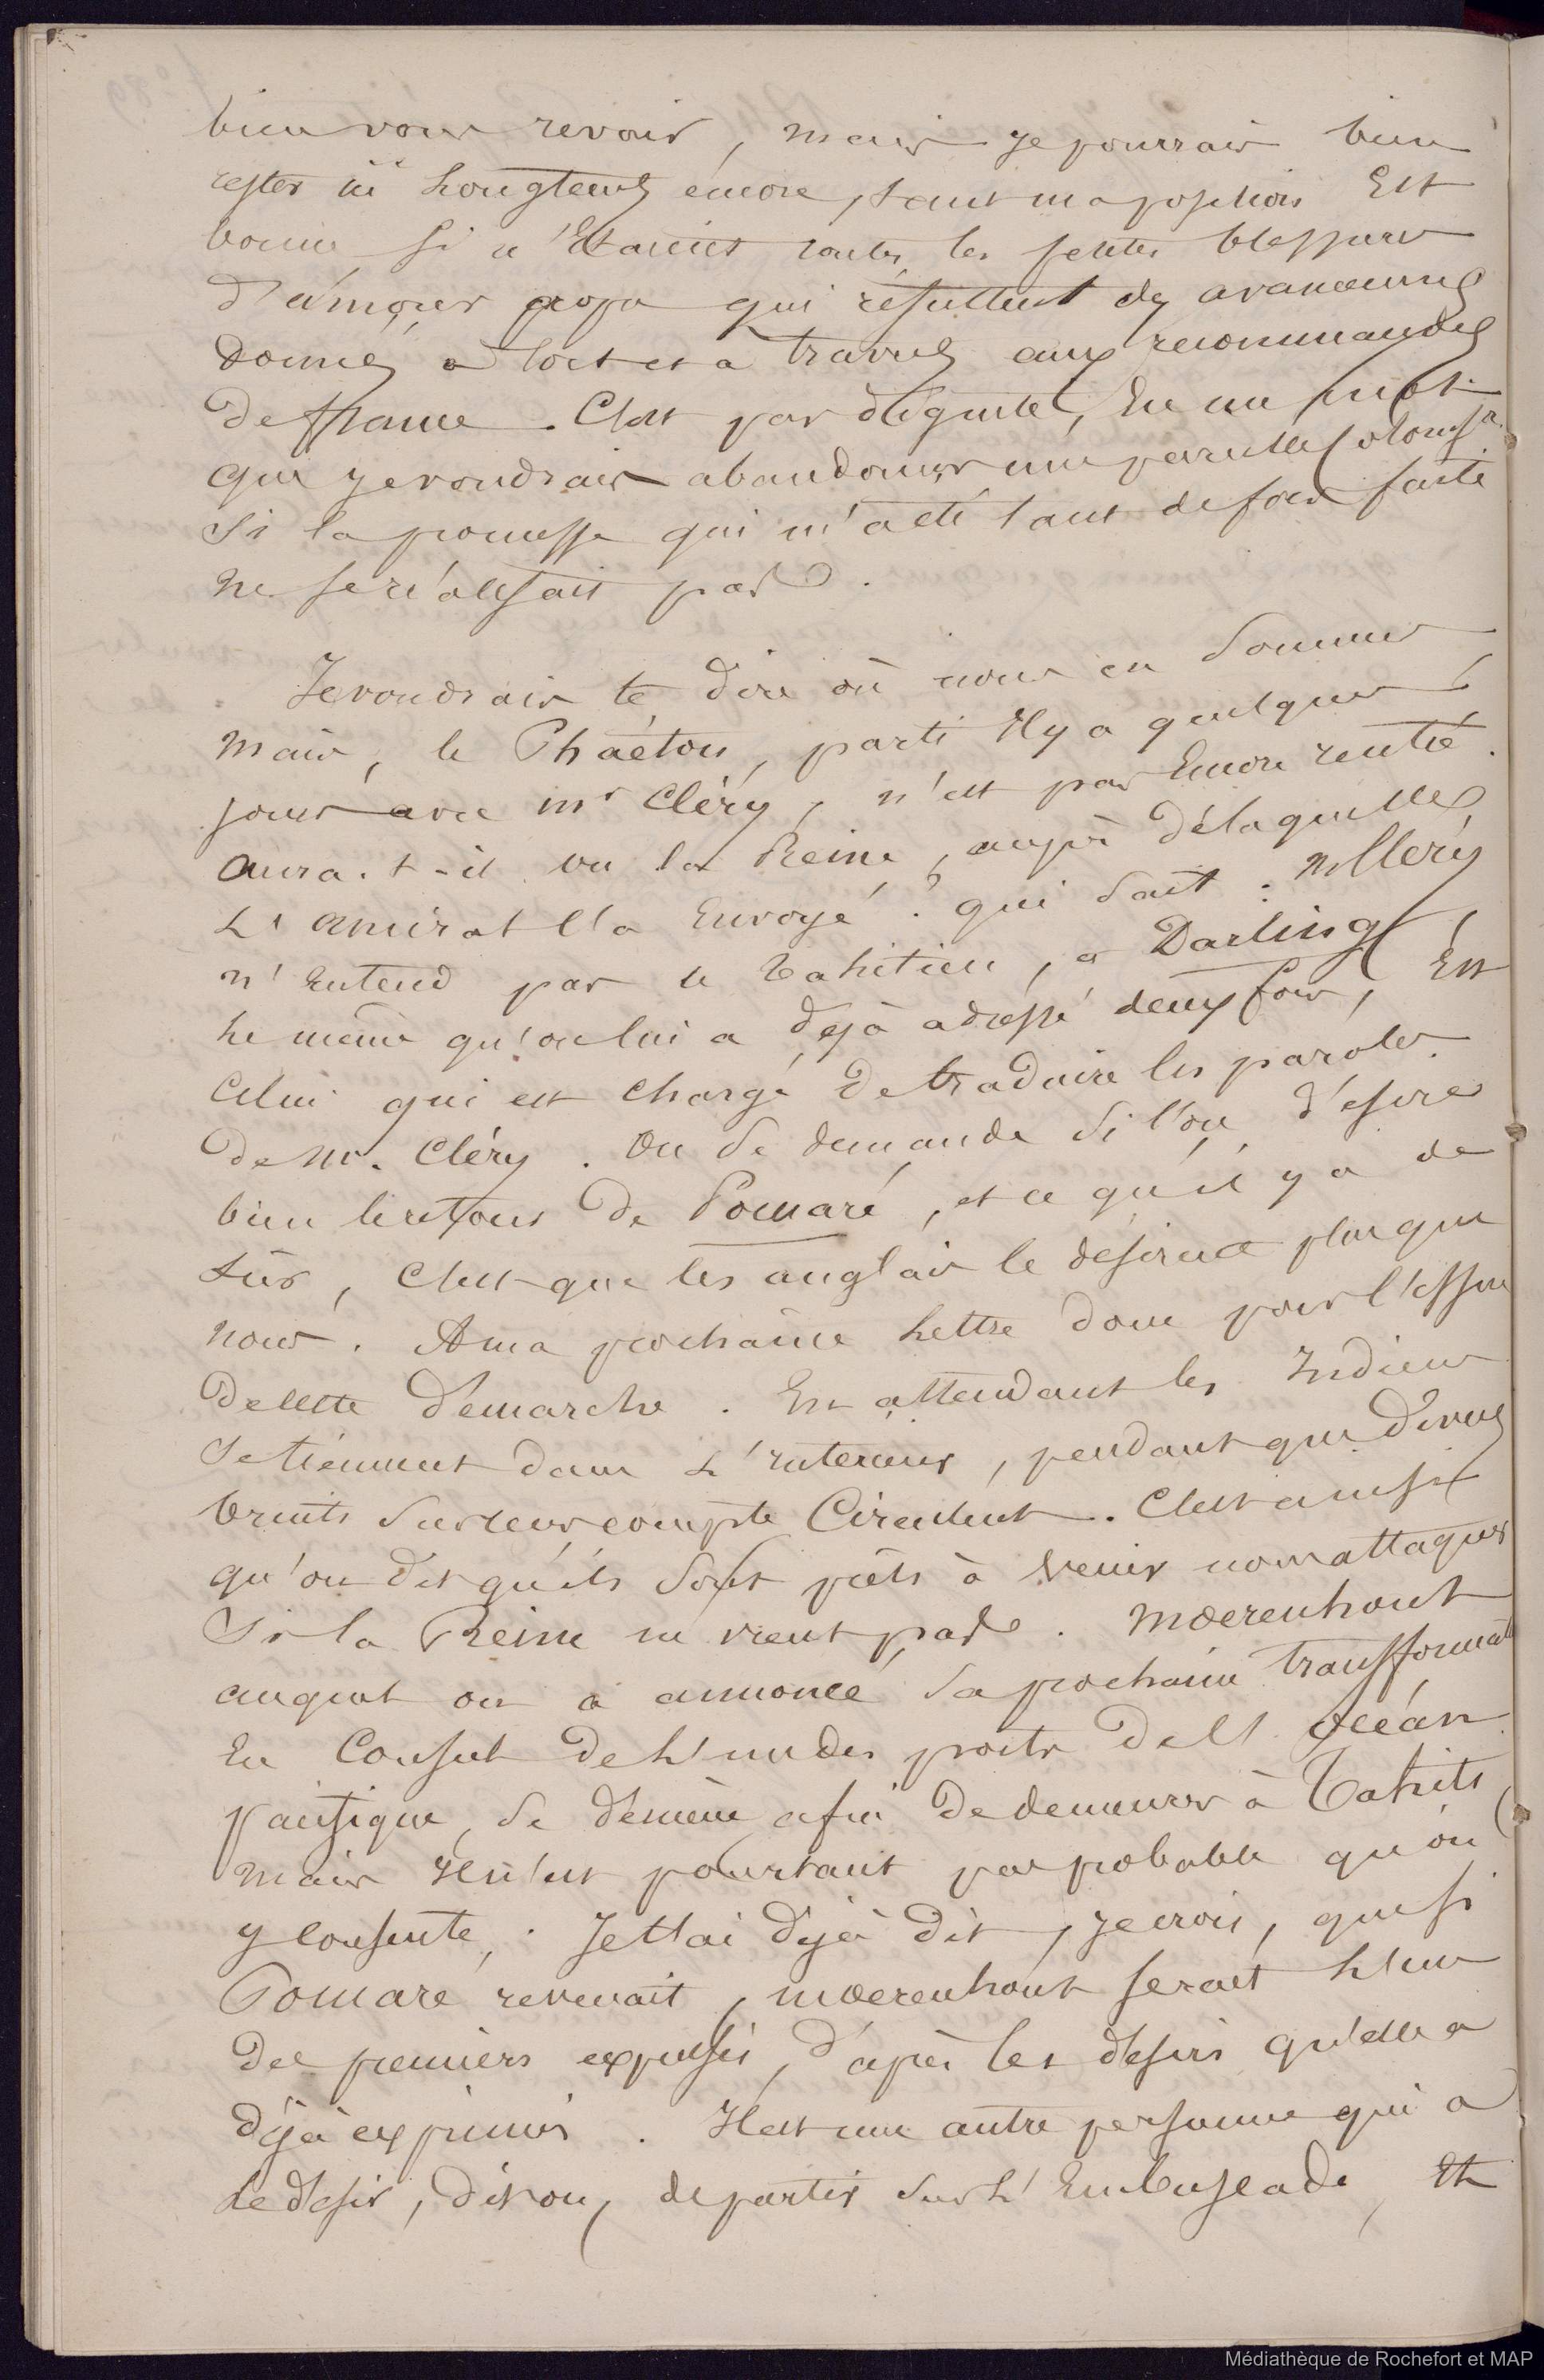 bien vous revoir, mais je pourrais bien
rester ici Longtems encore, tant ma position Est
bonne, si n'Etaient toutes les petites blessures
d'amour propre qui résultent des avancemens
Donnés à tort et à travers aux recommandés
De france. C'est par dignité, En un mot
que je voudrais abandonner une pareille
Si la promesse qui m'a été tant de fois faite
ne se réalisait pas.
Je voudrais te dire où nous en Sommes
mais, le Phaéton, parti Il y a quelques
jours avec mr Cléry, n'est pas Encore rentré.
aura-t-il vu la Reine, auprès de laquelle
L'amiral l'a Envoyé. qui Sait. Mr Cléry
n'Entend pas le Tahitien, et Darling,
Le même qu'on lui a déjà adressé deux fois, Est
Celui qui est Chargé De traduire les paroles
De Mr. Cléry. On Se demande Si l'on désire
bien le retour De Pomaré, et ce qu'il y a de
Sûr, C'est que les anglais le désirent plus que
nous. A ma prochaine Lettre donc pour l'issue
De cette Démarche. En attendant les Indiens
Se tiennent dans L'Intérieur, pendant que Divers
bruits Sur leur compte Circulent. C'est ainsi
qu'on dit qu'ils Sont prêts à venir nous attaquer
Si la Reine ne vient pas. Moerenhout
auquel on a annoncé Sa prochaine transformaon
En Consul De L'un des ports De L'Océan
pacifique, Se démène afin De demeurer à Tahiti,
mais Il n'est pourtant pas probable qu'on
y consente. Je t'ai déjà Dit, je crois, que si
Pomaré revenait, moerenhout serait L'un
Des premiers expulsés, d'après les désirs qu'elle a
déjà exprimés. Il est une autre personne qui a
Le désir, dit on, de partir Sur L'Embuscade, Et
Médiathèque de Rochefort et MAP